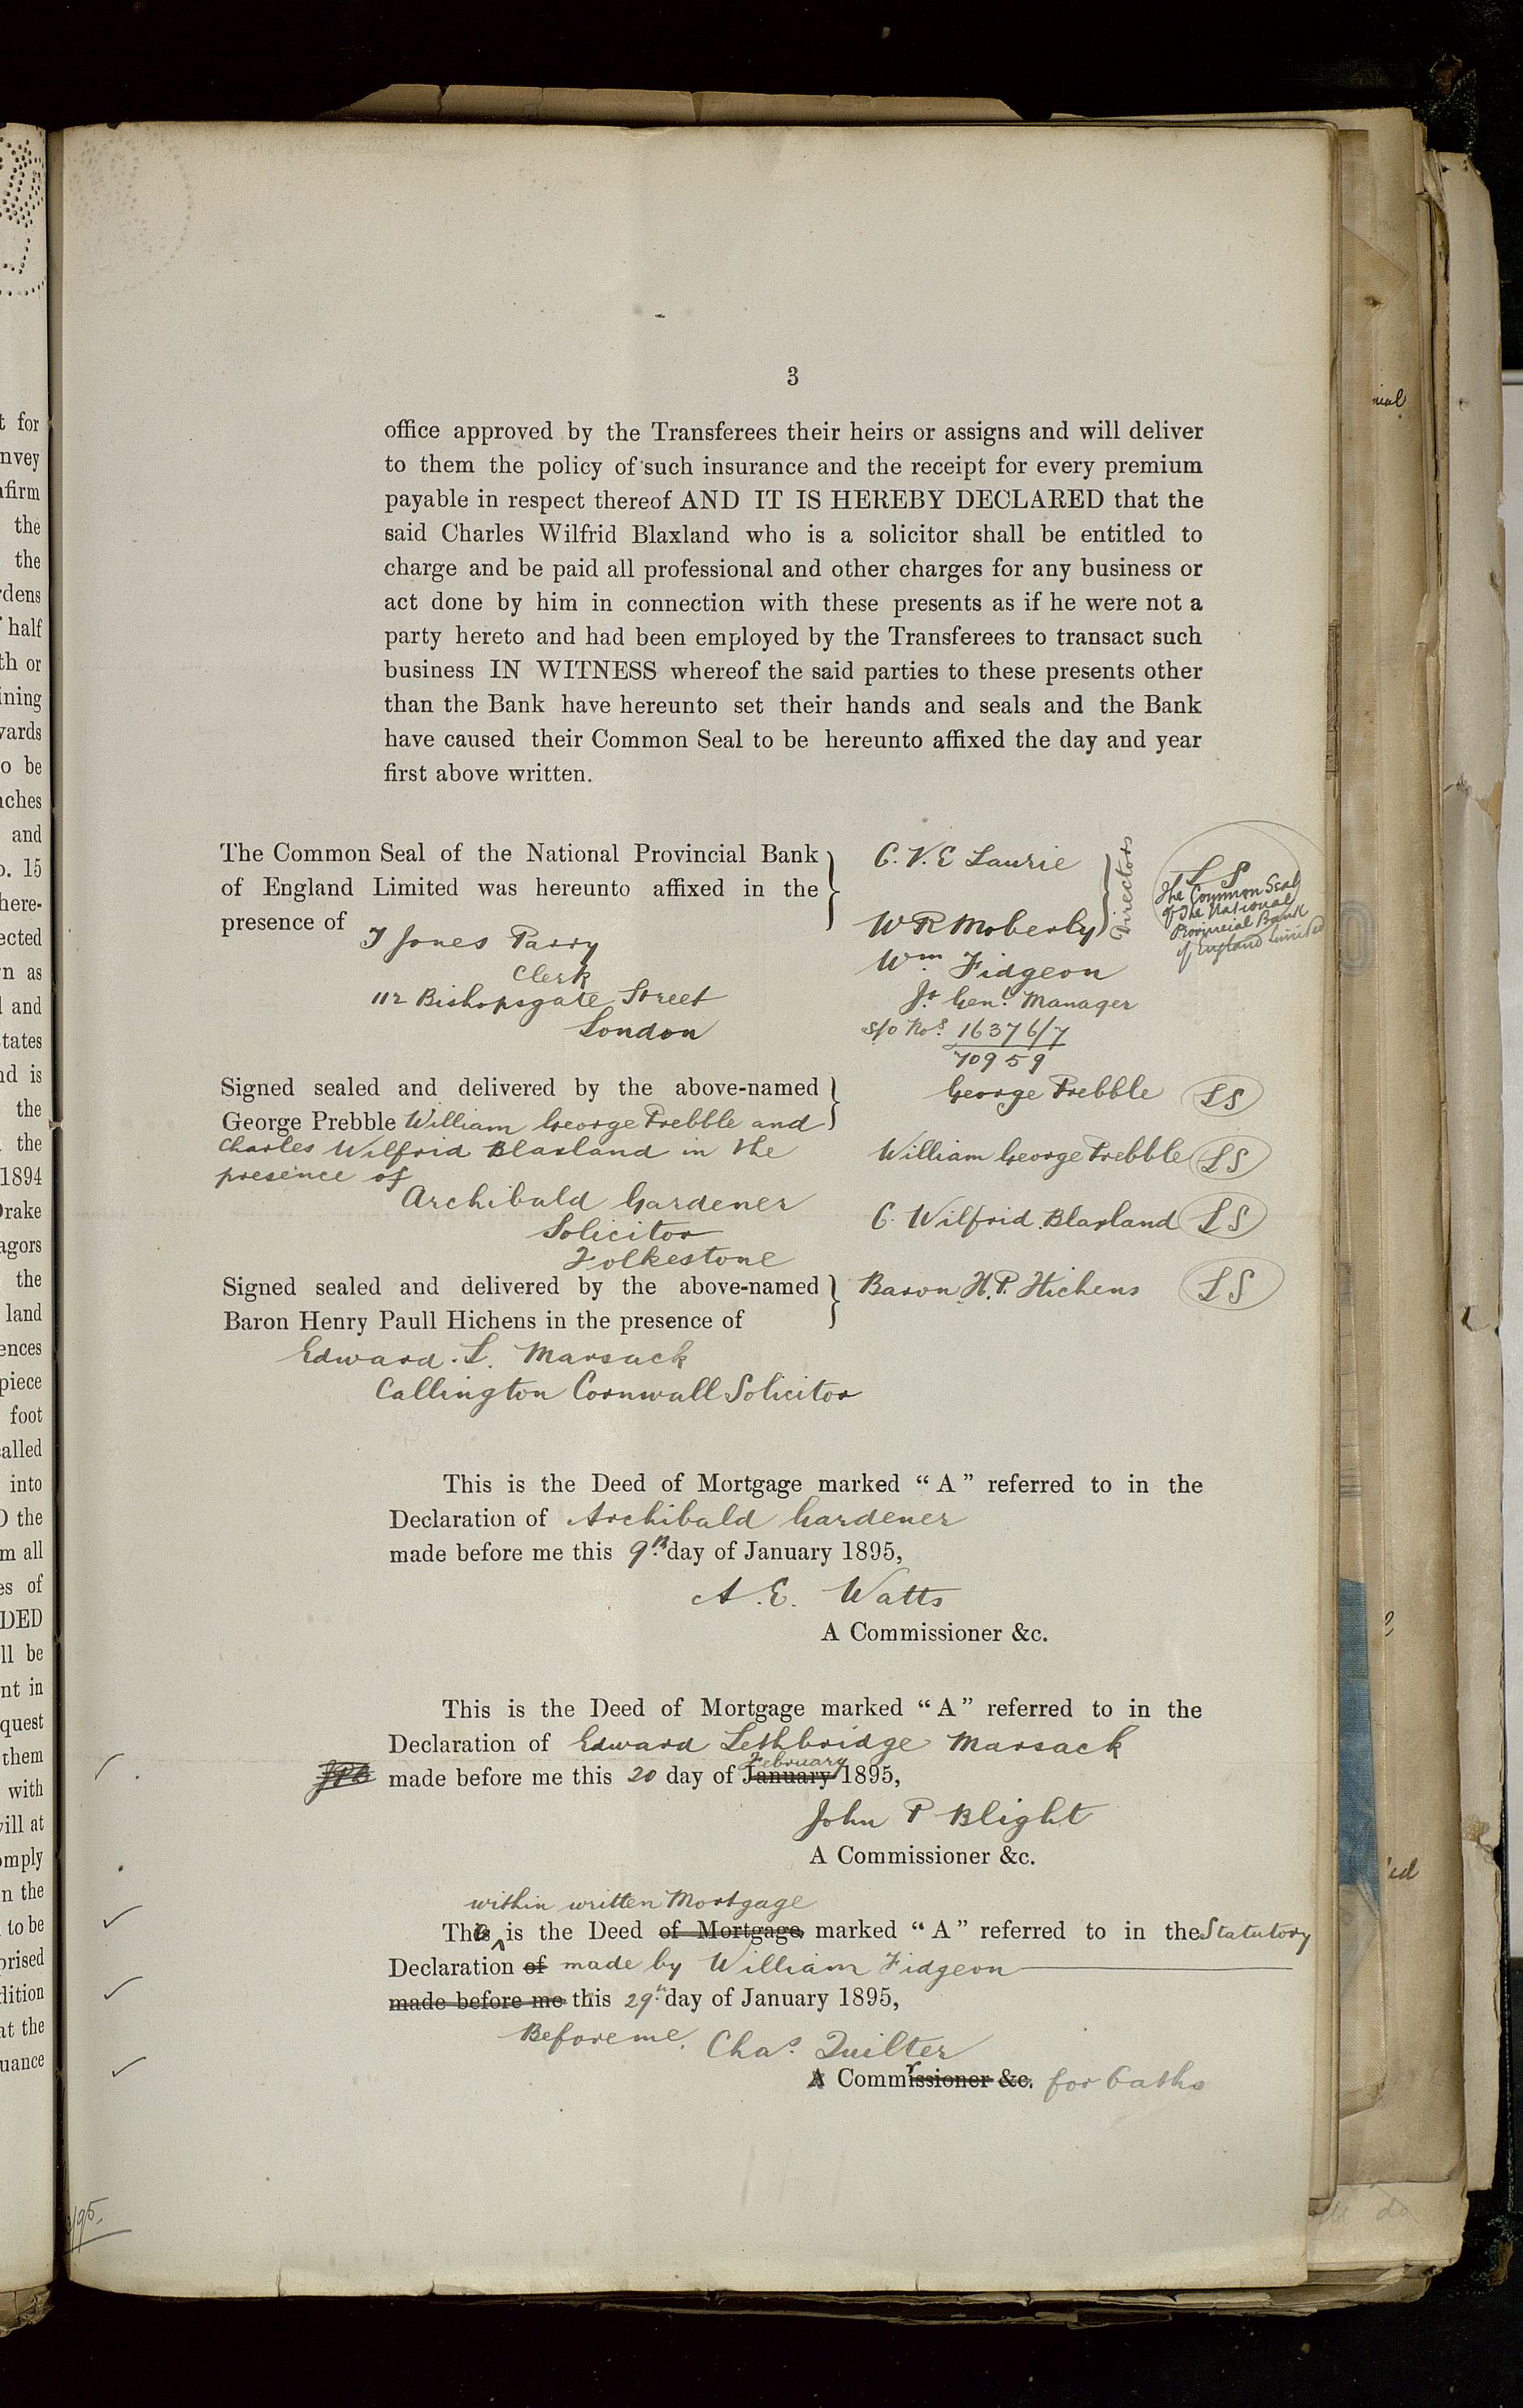 3
office approved by the Transferees their heirs or assigns and will deliver
to them the policy of such insurance and the receipt for every premium
payable in respect thereof AND IT IS HEREBY DECLARED that the
said Charles Wilfrid Blaxland who is a solicitor shall be entitled to
charge and be paid all professional and other charges for any business or
act done by him in connection with these presents as if he were not a
party hereto and had been employed by the Transferees to transact such
business IN WITNESS whereof the said parties to these presents other
than the Bank have hereunto set their hands and seals and the Bank
have caused their Common Seal to be hereunto affixed the day and year
first above written.
The Common Seal of the National Provincial Bank
of England Limited was hereunto affixed in the
presence of
T Jones Parry
Clerk
112 Bishopsgate Street
London
C. V. E Laurie
W R Moberly
Directors
Wm. Fidgeon
Jt Genl Manager
s/o Nos. 16376/7
70959
L S
The Common Seal
of The National
Provincial Bank
of England Limited
Signed sealed and delivered by the above-named
George Prebble William George Prebble and
Charles Wilfrid Blaxland in the
presence of
Archibald Gardener
Solicitor
Folkestone
George Prebble LS
William George Prebble LS
C. Wilfrid Blaxland LS
Signed sealed and delivered by the above-named
Baron Henry Paull Hichens in the presence of
Edward. L. Marsack
Callington Cornwall Solicitor
Baron H. P. Hichens LS
This is the Deed of Mortgage marked "A" referred to in the
Declaration of Archibald Gardener
made before me this 9th day of January 1895,
A. E. Watts
A Commissioner &c.
This is the Deed of Mortgage marked "A" referred to in the
Declaration of Edward Lethbridge Marsack
February
made before me this 20 day of January 1895,
John P Blight
A Commissioner &c.
within written Mortgage
The is the Deed of Mortgage marked "A" referred to in the Statutory
Declaration of made by William Fidgeon
made before me this 29th day of January 1895,
Before me, Chas. Quilter
A Commissioner &c. for Oaths
t for
nvey
nfirm
the
the
rdens
half
th or
ining
wards
o be
nches
and
o. 15
here-
ected
n as
and
tates
nd is
the
the
1894
Drake
agors
the
land
ences
piece
foot
called
into
the
m all
es of
DED
ll be
nt in
quest
them
with
will at
omply
n the
to be
prised
dition
at the
uance